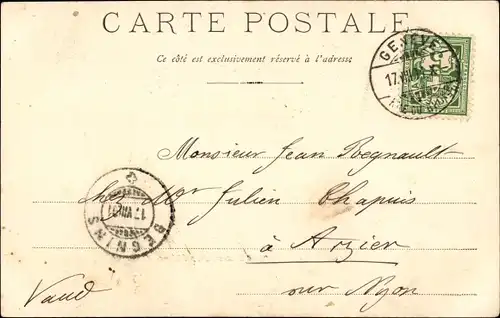 CARTE POSTALE
Ce côté est exclusivement réservé à l'adresse
GENÈVE
17.VIII
RUE DU
Monsieur Jean Regnault
chez Mr Julien Chapuis
à Arzier
sur Nyon
Vaud
17.VIII.01
BEGNINS